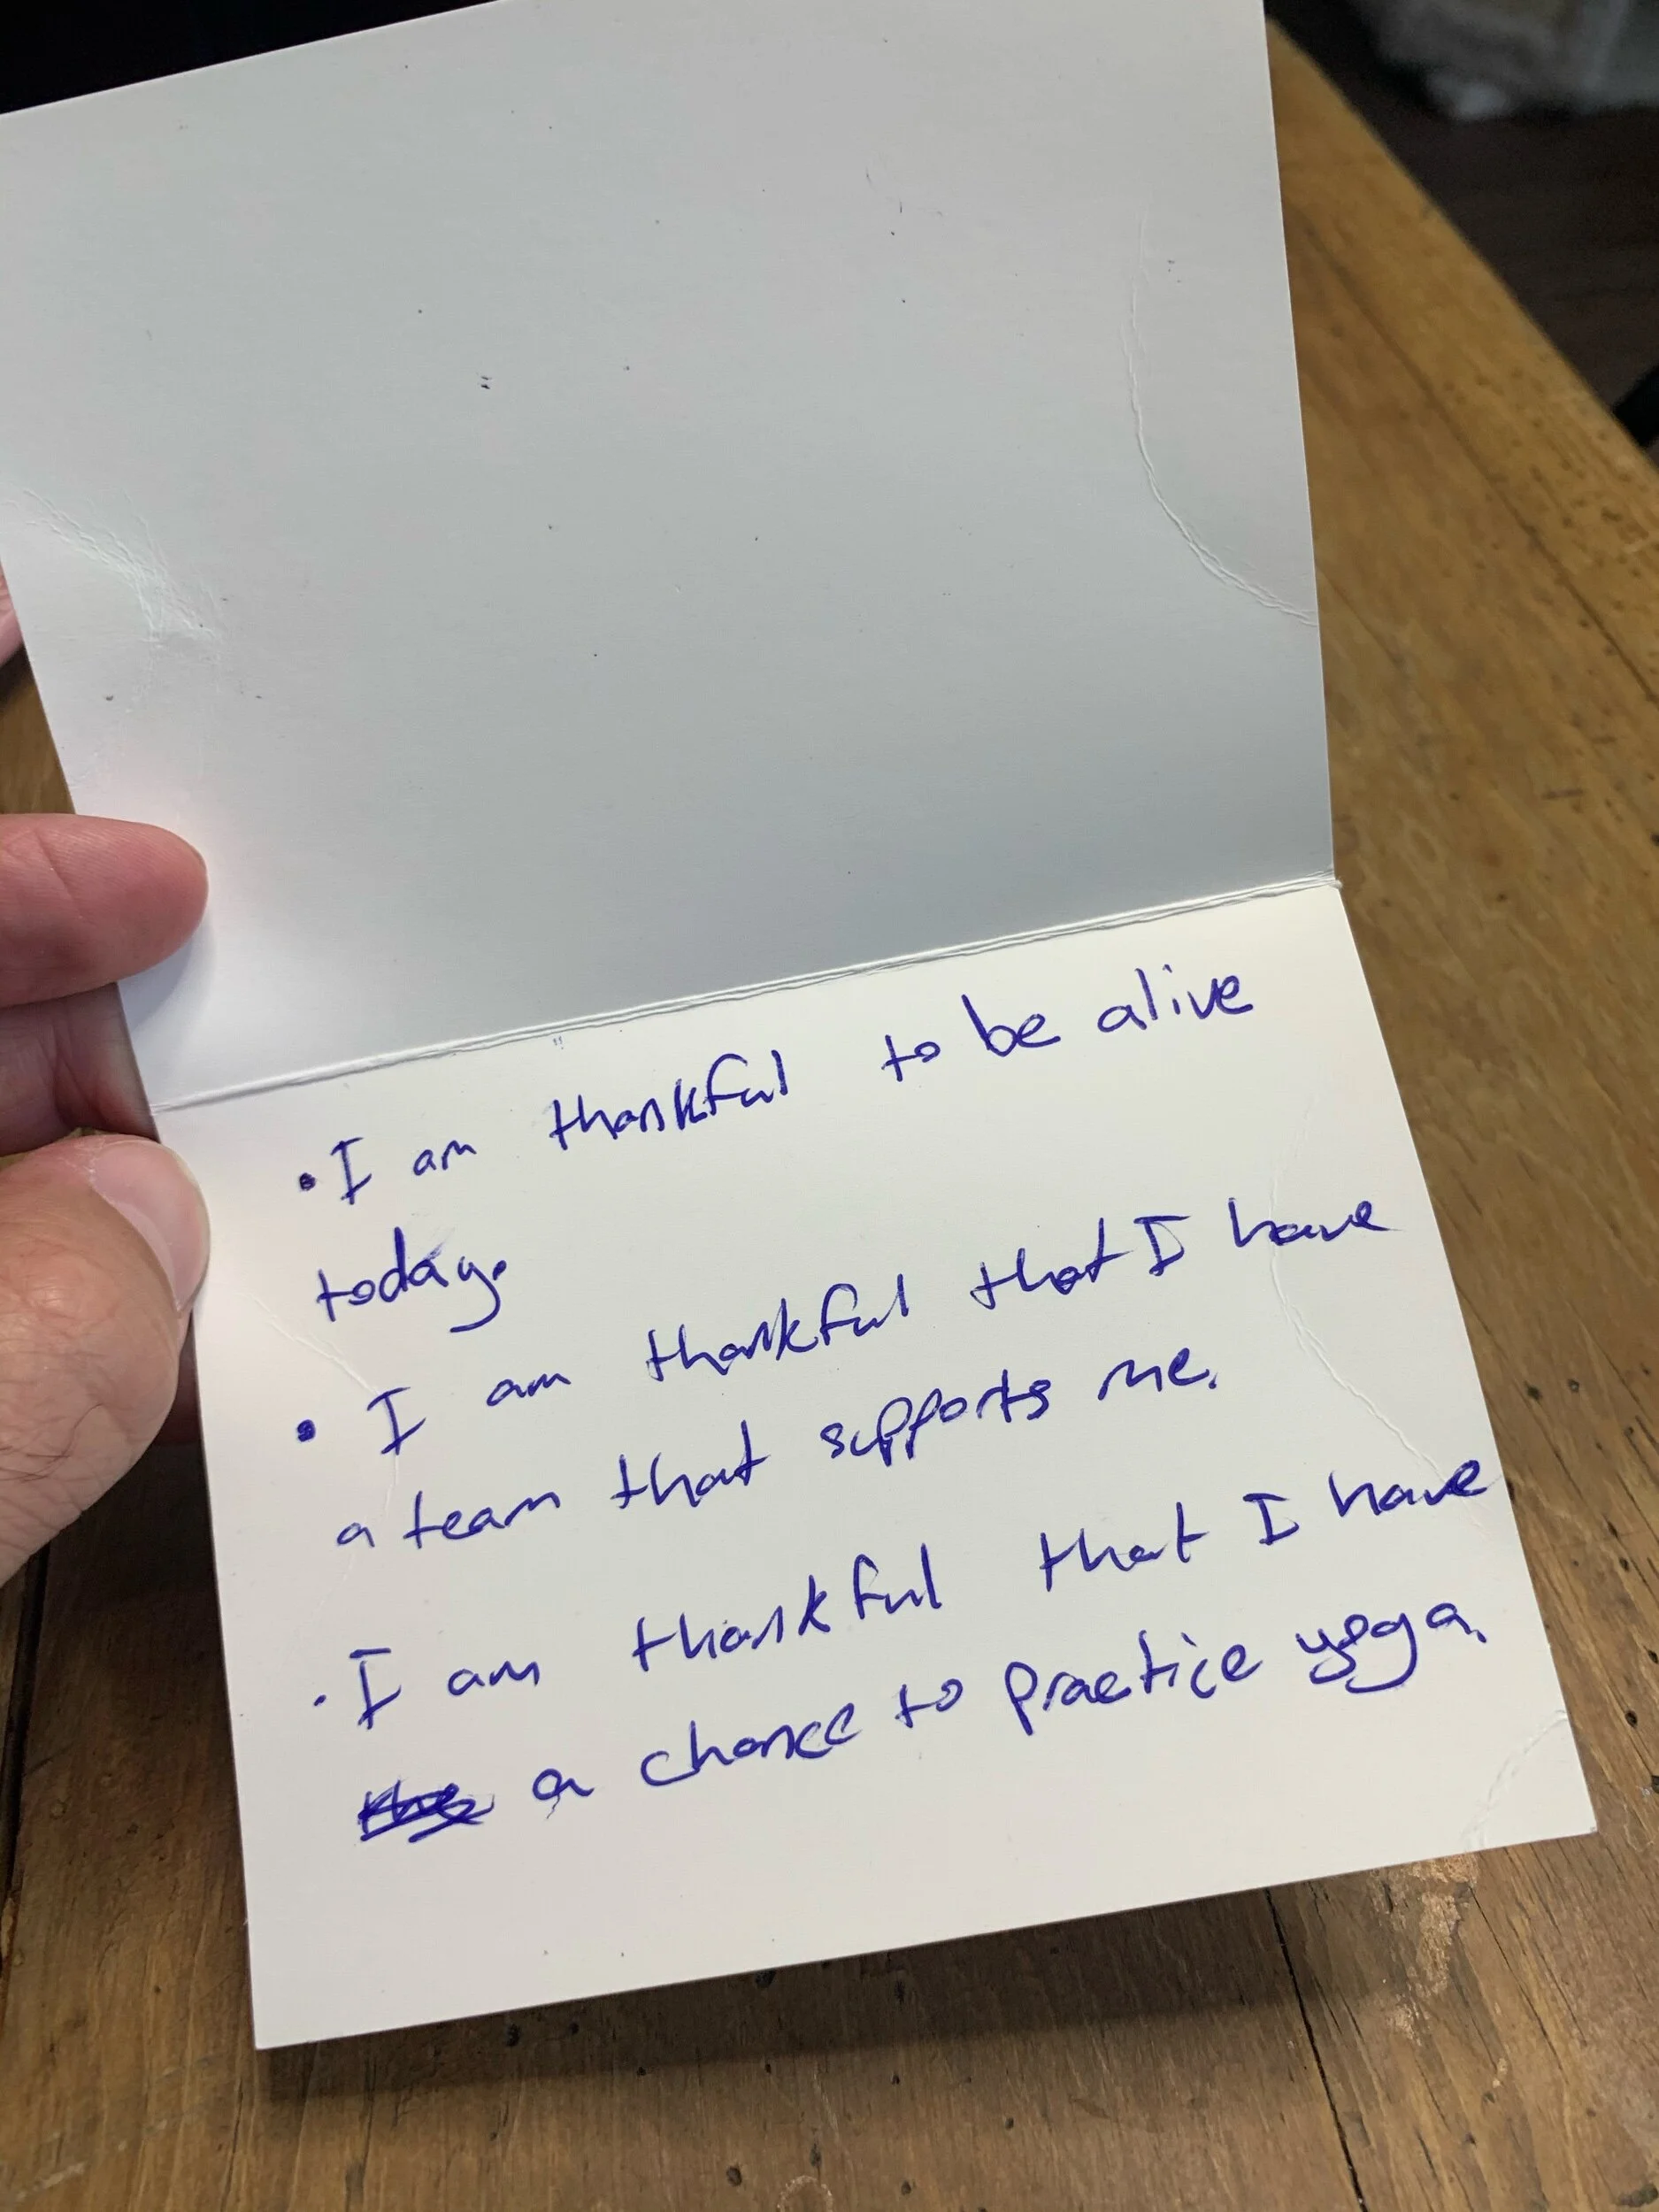 • I am thankful to be alive
today.
• I am thankful that I have
a team that supports me.
• I am thankful that I have
a chance to practice yoga.